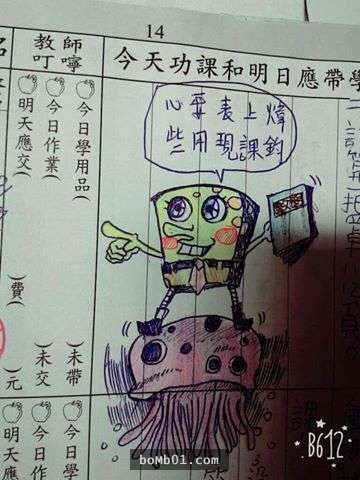 14
今天功課和明日應帶學
教師
叮嚀
煒鈞
上課
表現
要用
心些
今日學用品( )未帶
今日作業( )未交
明天應交( )費( )元
今日學
今日作
明天應
B612
boMb01.com